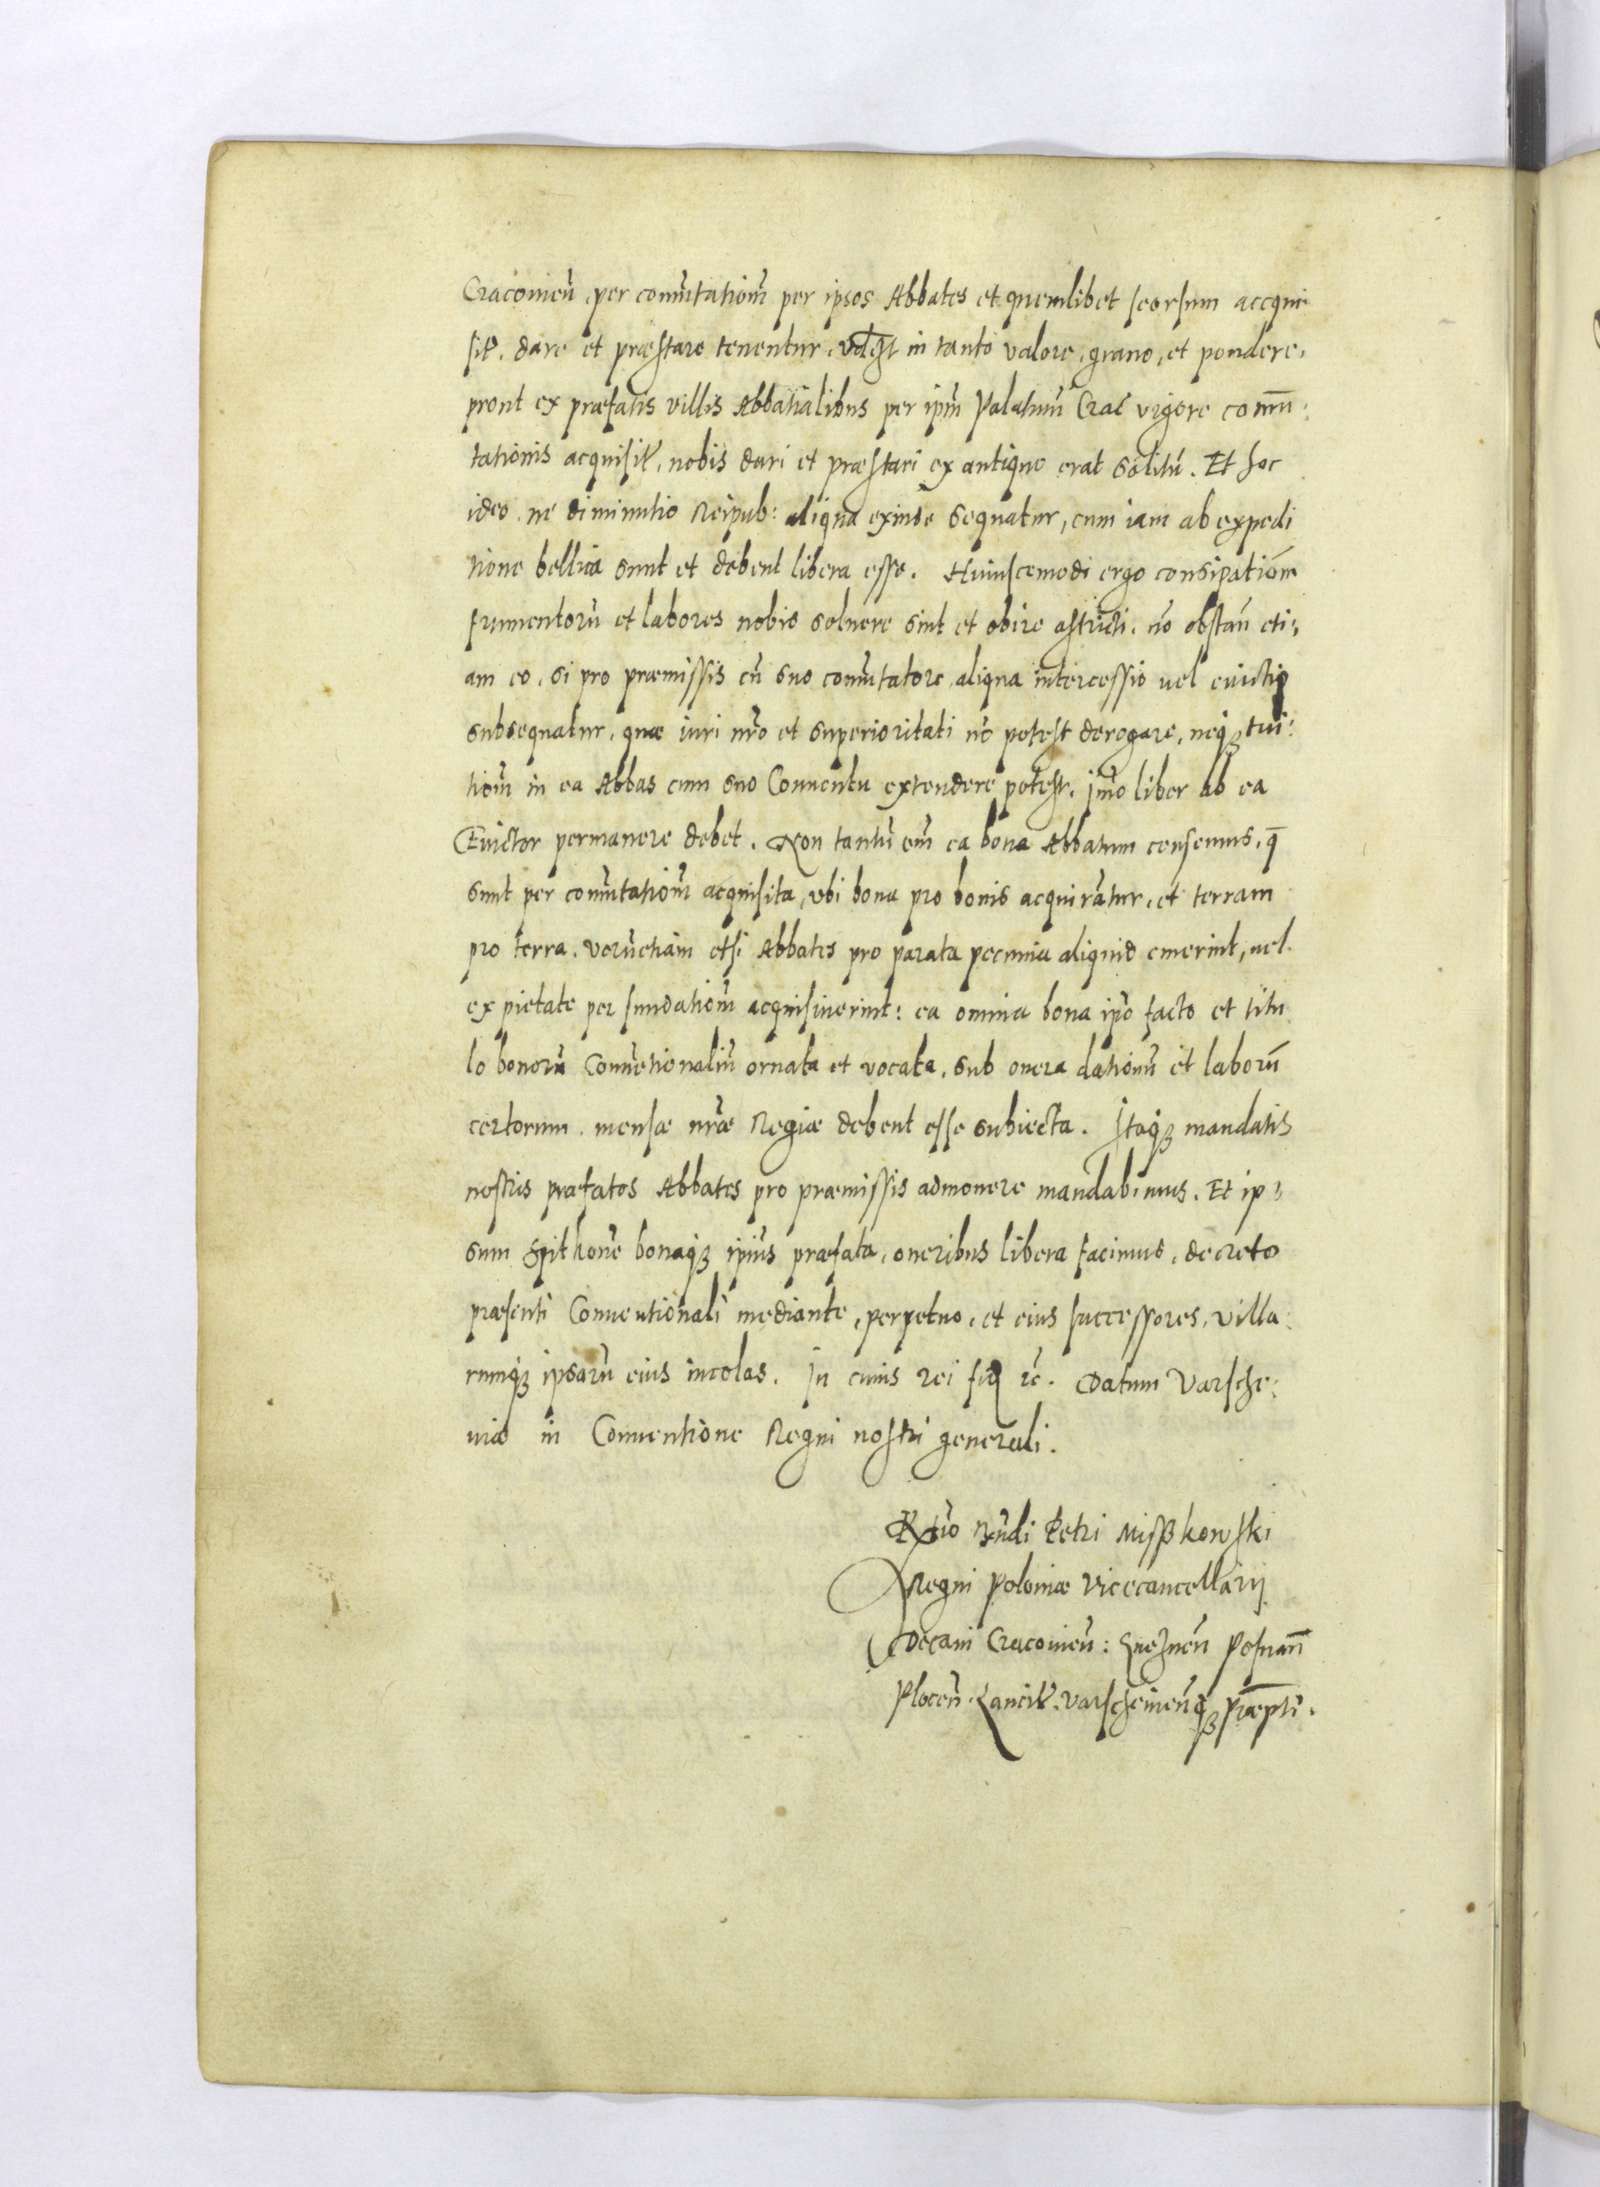 Cracovieñ, per com̃utationẽ per ipsos Abbates et quemlibet seorsum acqui
sit̃. dare et præstare tenentur. vidꝫ in tanto valore, grano, et pondere,
prout ex præfatis villis Abbatialibus per ipm̃ Palatinũ Crac̃ vigore com̃u:
tationis acquisit̃, nobis dari et præstari ex antiquo erat solitũ. Et hoc
ideo. ne diminutio Reipub: aliqua exinde sequatur, cum iam ab expedi
tione bellica sunt et debent libera esse. Huiuscemodi ergo consipationẽ
frumentorũ et labores nobis soluere sint et obire astricti. nõ obstañ eti:
am eo, si pro præmissis cũ suo com̃utatore aliqua intercessio uel euictio
subsequatur, quæ iuri nr̃o et superioritati nõ potest derogare, neqꝫ tui:
tionẽ in ea Abbas cum suo Conuentu extendere potest. Jm̃o liber ab ea
Euictor permanere debet. Non tantũ em̃ ea bona Abbatum censemus, q̃
sunt per com̃utationẽ acquisita, vbi bona pro bonis acquirãtur, et terram
pro terra. verũetiam etsi Abbates pro parata pecunia aliquid emerint, uel
ex pietate per fundationẽ acquisiuerint: ea omnia bona ipõ facto et titu
lo bonorũ Conuẽtionaliũ ornata et vocata, sub onera dationũ et laborũ
certorum mensæ nr̃æ Regiæ debent esse subiecta. Jtaqꝫ mandatis
nostris præfatos Abbates pro præmissis admonere mandabimus. Et ip:
sum Spithonẽ bonaqꝫ ipius præfata, oneribus libera facimus, decreto
præsenti Conuentionali mediante, perpetuo, et eius successores, villa:
rumqꝫ ipsarũ eius incolas. In cuius rei fid ꝛc̃. Datum Varsche:
uiæ in Conuentione Regni nostri generali.
Rñdi Petri Mißkowski
Regni Poloniæ Vicecancellarij
Decani Cracovieñ: Gnezneñ Posnañ
Ploceñ. Lancit̃. Varscheuieñqꝫ Præpti.